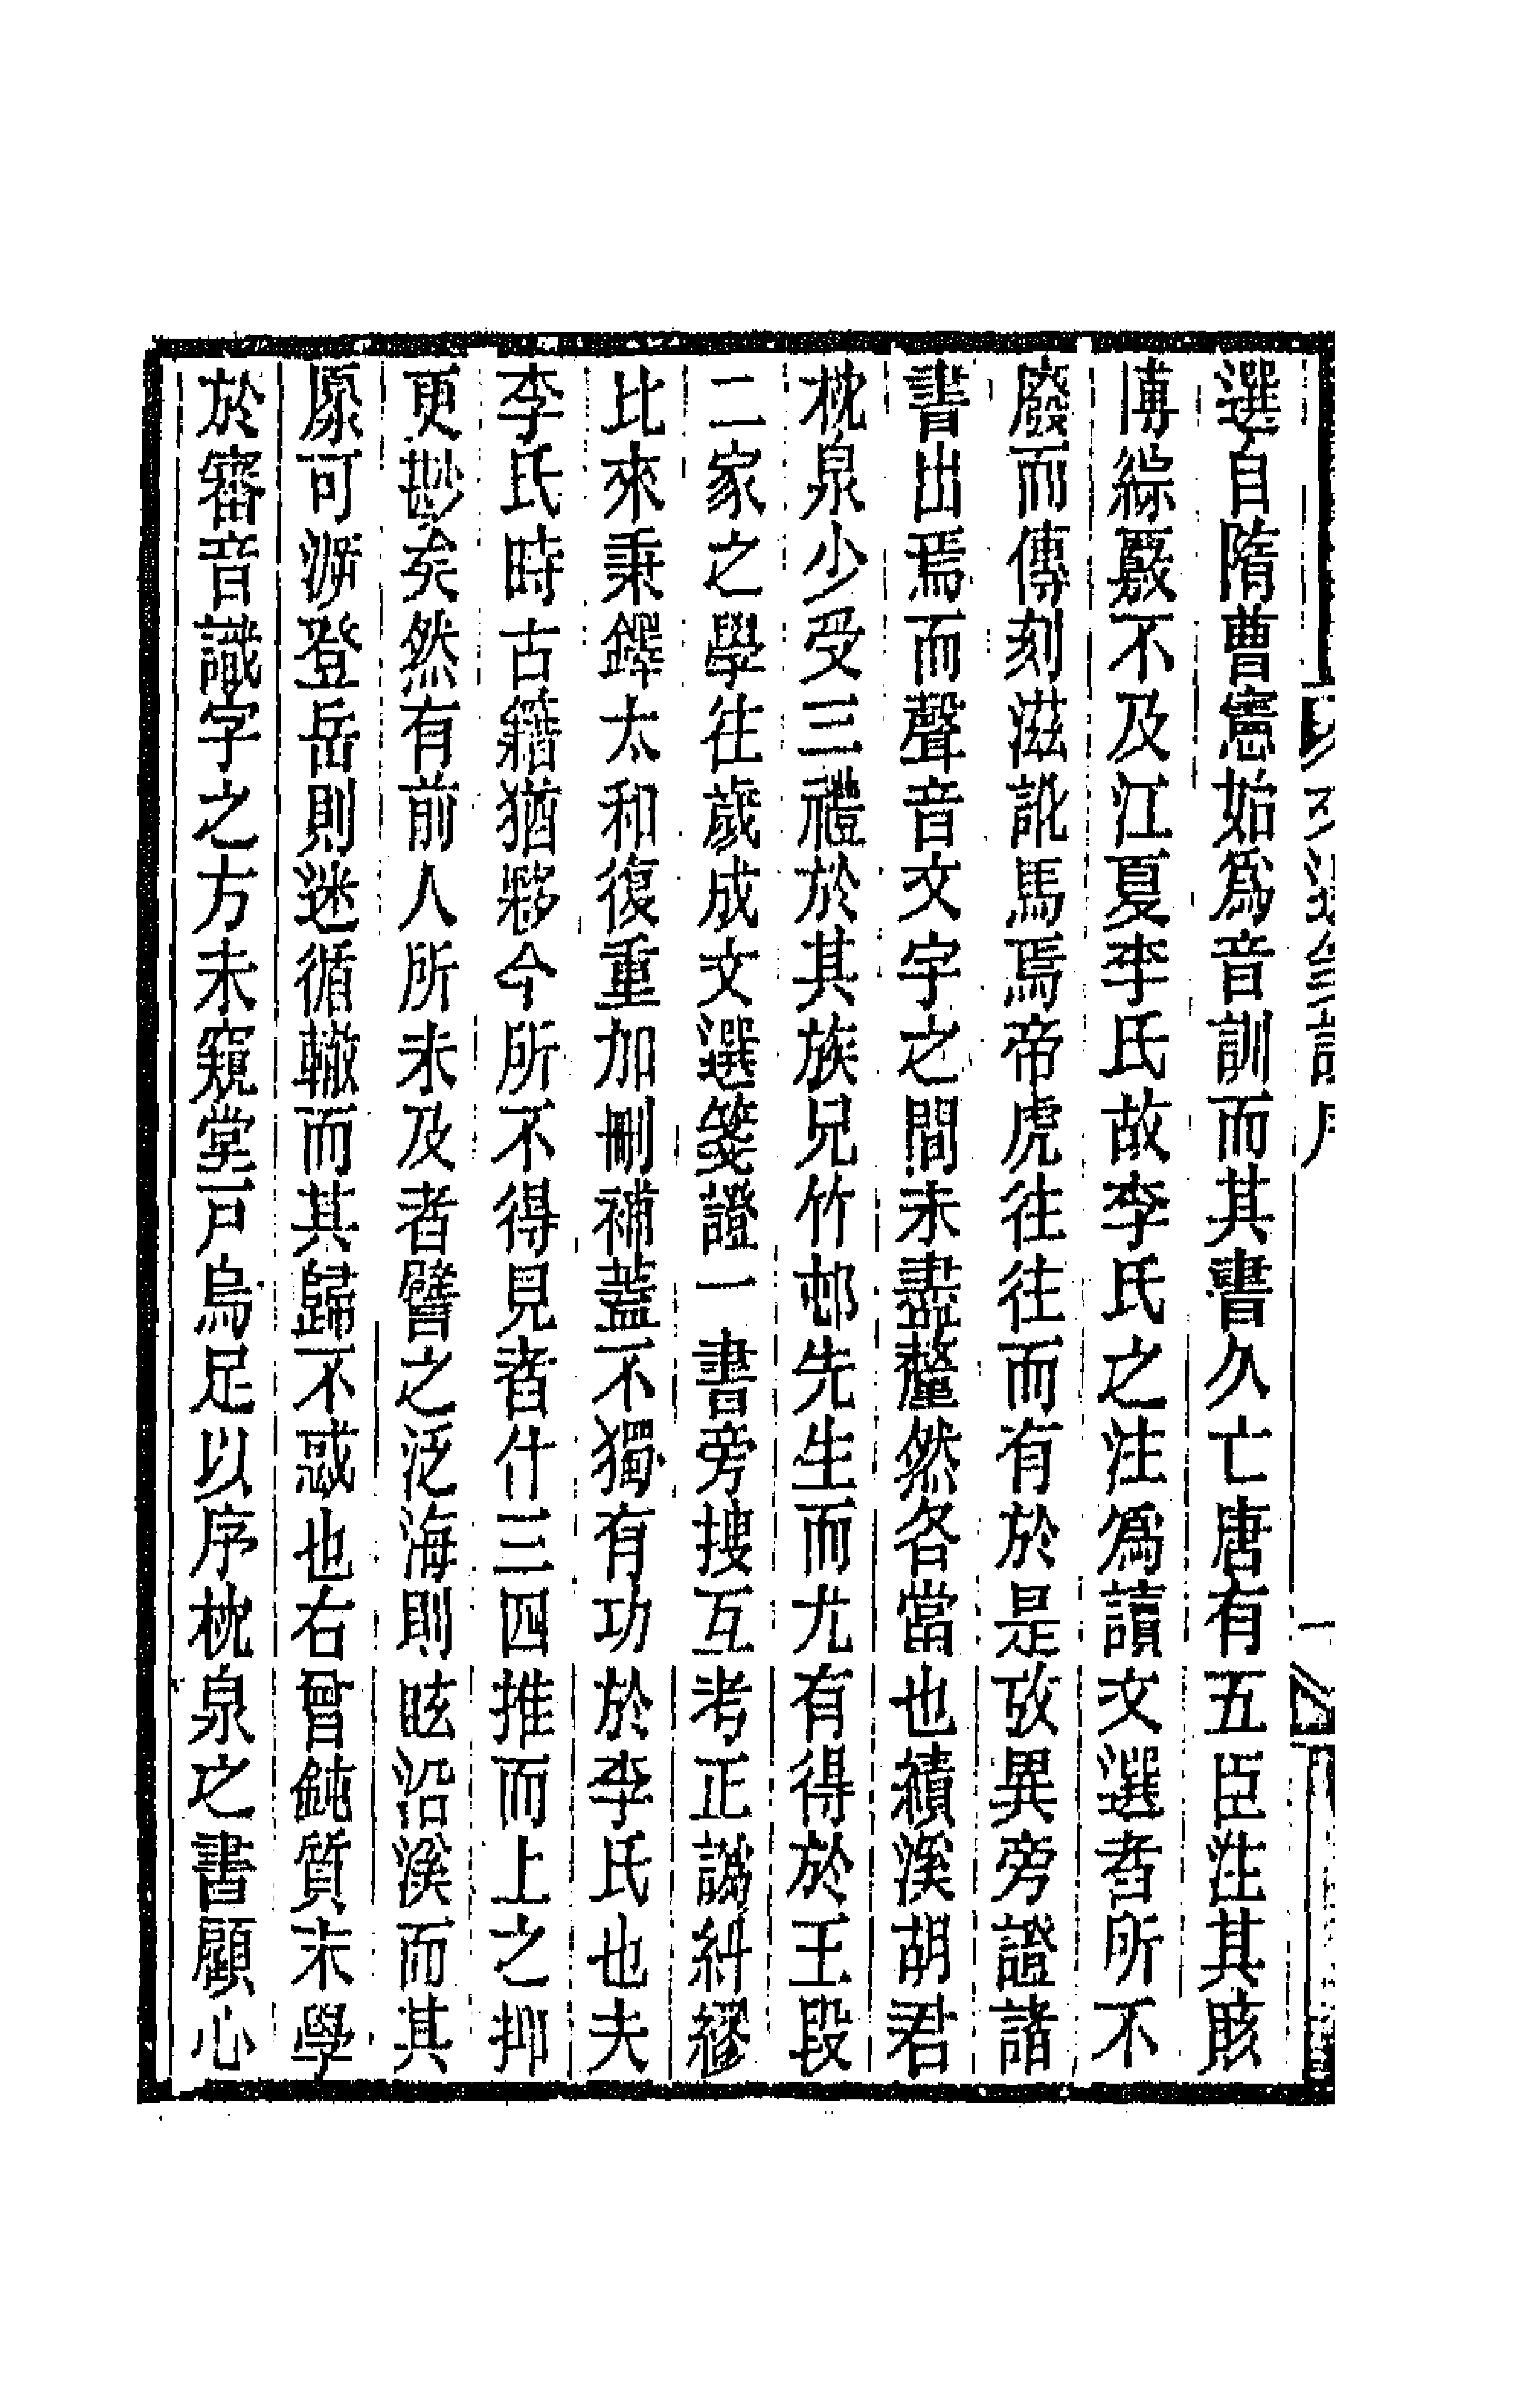 選自隋曹憲始爲音訓而其書久亡唐有五臣注其賅
博綜覈不及江夏李氏故李氏之注爲讀文選者所不
廢而傳刻滋訛馬焉帝虎往往而有於是攷異旁證諸
書出焉而聲音文字之間未盡釐然各當也績溪胡君
枕泉少受三禮於其族兄竹邨先生而尤有得於王段
二家之學往歲成文選箋證一書旁搜互考正譌糾繆
比來秉鐸太和復重加刪補蓋不獨有功於李氏也夫
李氏時古籍猶夥今所不得見者什三四推而上之抑
更尠矣然有前人所未及者譬之泛海則眩沿溪而其
原可泝登岳則迷循轍而其歸不惑也右曾鈍質末學
於審音識字之方未窺堂戶烏足以序枕泉之書顧心